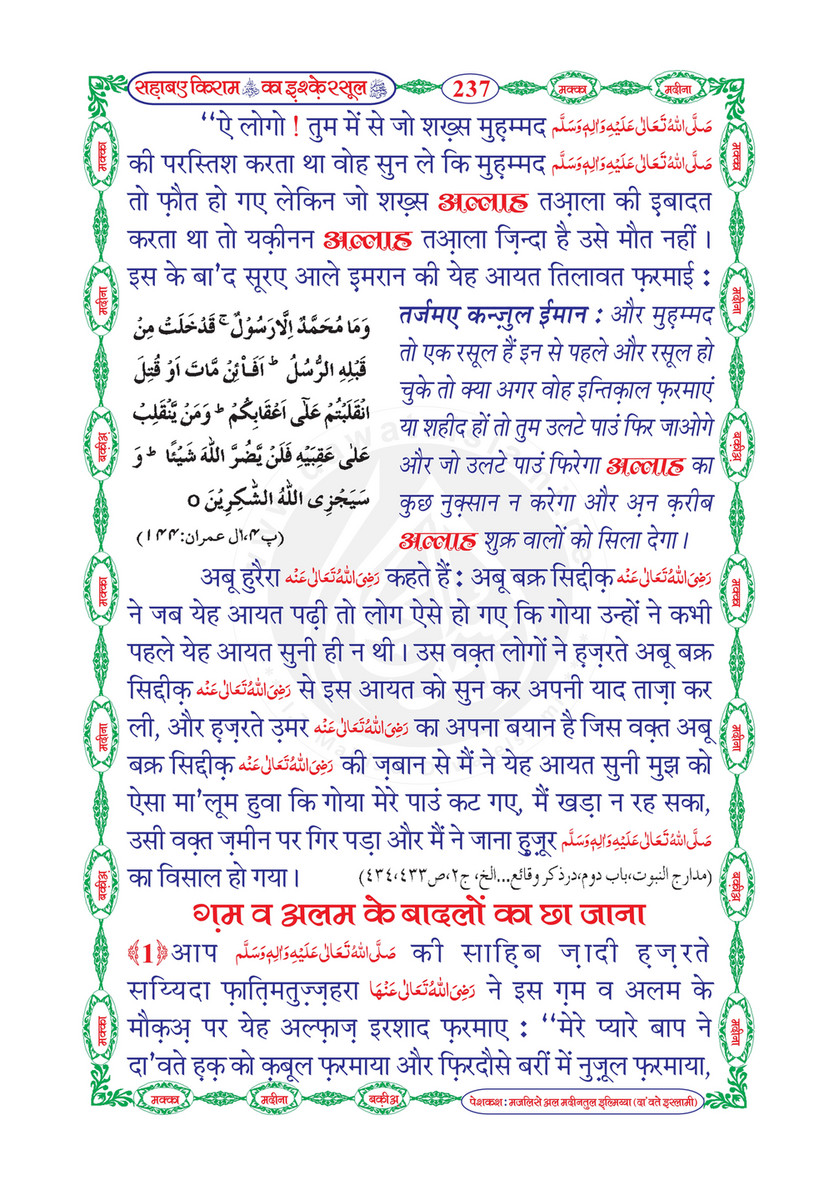 सह़ाबए किराम رضی اللہ عنہم का इ़श्के़ रसूल ﷺ 237 मक्का मदीना
“ऐ लोगो ! तुम में से जो शख़्स मुह़म्मद صَلَّى اللهُ تَعَالٰى عَلَيْهِ وَاٰلِهٖ وَسَلَّم
की परस्तिश करता था वोह सुन ले कि मुह़म्मद صَلَّى اللهُ تَعَالٰى عَلَيْهِ وَاٰلِهٖ وَسَلَّم
तो फ़ौत हो गए लेकिन जो शख़्स अल्लाह तआ़ला की इ़बादत
करता था तो यक़ीनन अल्लाह तआ़ला ज़िन्दा है उसे मौत नहीं ।
इस के बा’द सूरए आले इमरान की येह आयत तिलावत फ़रमाई :
وَمَا مُحَمَّدٌ اِلَّا رَسُوْلٌ ۚ قَدْ خَلَتْ مِنْ
قَبْلِهِ الرُّسُلُ ؕ اَفَا۠ئِنْ مَّاتَ اَوْ قُتِلَ
انْقَلَبْتُمْ عَلٰۤى اَعْقَابِكُمْ ؕ وَمَنْ يَّنْقَلِبْ
عَلٰى عَقِبَيْهِ فَلَنْ يَّضُرَّ اللّٰهَ شَيْئًا ؕ وَ
سَيَجْزِى اللّٰهُ الشّٰكِرِيْنَ ○
(پ۴،اٰل عمران:۱۴۴)
तर्जमए कन्ज़ुल ईमान : और मुह़म्मद
तो एक रसूल हैं इन से पहले और रसूल हो
चुके तो क्या अगर वोह इन्तिक़ाल फ़रमाएं
या शहीद हों तो तुम उलटे पाउं फिर जाओगे
और जो उलटे पाउं फिरेगा अल्लाह का
कुछ नुक़्सान न करेगा और अ़न क़रीब
अल्लाह शुक्र वालों को सिला देगा ।
अबू हुरैरा رَضِىَ اللهُ تَعَالٰى عَنْه कहते हैं : अबू बक्र सिद्दीक़ رَضِىَ اللهُ تَعَالٰى عَنْه
ने जब येह आयत पढ़ी तो लोग ऐसे हो गए कि गोया उन्हों ने कभी
पहले येह आयत सुनी ही न थी । उस वक़्त लोगों ने ह़ज़रते अबू बक्र
सिद्दीक़ رَضِىَ اللهُ تَعَالٰى عَنْه से इस आयत को सुन कर अपनी याद ताज़ा कर
ली, और ह़ज़रते उ़मर رَضِىَ اللهُ تَعَالٰى عَنْه का अपना बयान है जिस वक़्त अबू
बक्र सिद्दीक़ رَضِىَ اللهُ تَعَالٰى عَنْه की ज़बान से मैं ने येह आयत सुनी मुझ को
ऐसा मा’लूम हुवा कि गोया मेरे पाउं कट गए, मैं खड़ा न रह सका,
उसी वक़्त ज़मीन पर गिर पड़ा और मैं ने जाना हुज़ूर صَلَّى اللهُ تَعَالٰى عَلَيْهِ وَاٰلِهٖ وَسَلَّم
का विसाल हो गया । (مدارج النبوت،باب دوم،درذکر وقائع...الخ، ج۲،ص۴۳۳،۴۳۴)
ग़म व अलम के बादलों का छा जाना
﴾1﴿ आप صَلَّى اللهُ تَعَالٰى عَلَيْهِ وَاٰلِهٖ وَسَلَّم की साहि़ब ज़ादी ह़ज़रते
सय्यिदा फ़ाति़मतुज़्ज़हरा رَضِىَ اللهُ تَعَالٰى عَنْهَا ने इस ग़म व अलम के
मौक़अ़ पर येह अल्फ़ाज़ इरशाद फ़रमाए : “मेरे प्यारे बाप ने
दा’वते ह़क़ को क़बूल फ़रमाया और फ़िरदौसे बरीं में नुज़ूल फ़रमाया,
मक्का
मदीना
बक़ीअ़
मक्का
मदीना
बक़ीअ़
मक्का
मक्का
मदीना
बक़ीअ़
मक्का
मदीना
बक़ीअ़
मदीना
मक्का मदीना बक़ीअ़ पेशकश : मजलिसे अल मदीनतुल इ़ल्मिय्या (दा'वते इस्लामी)